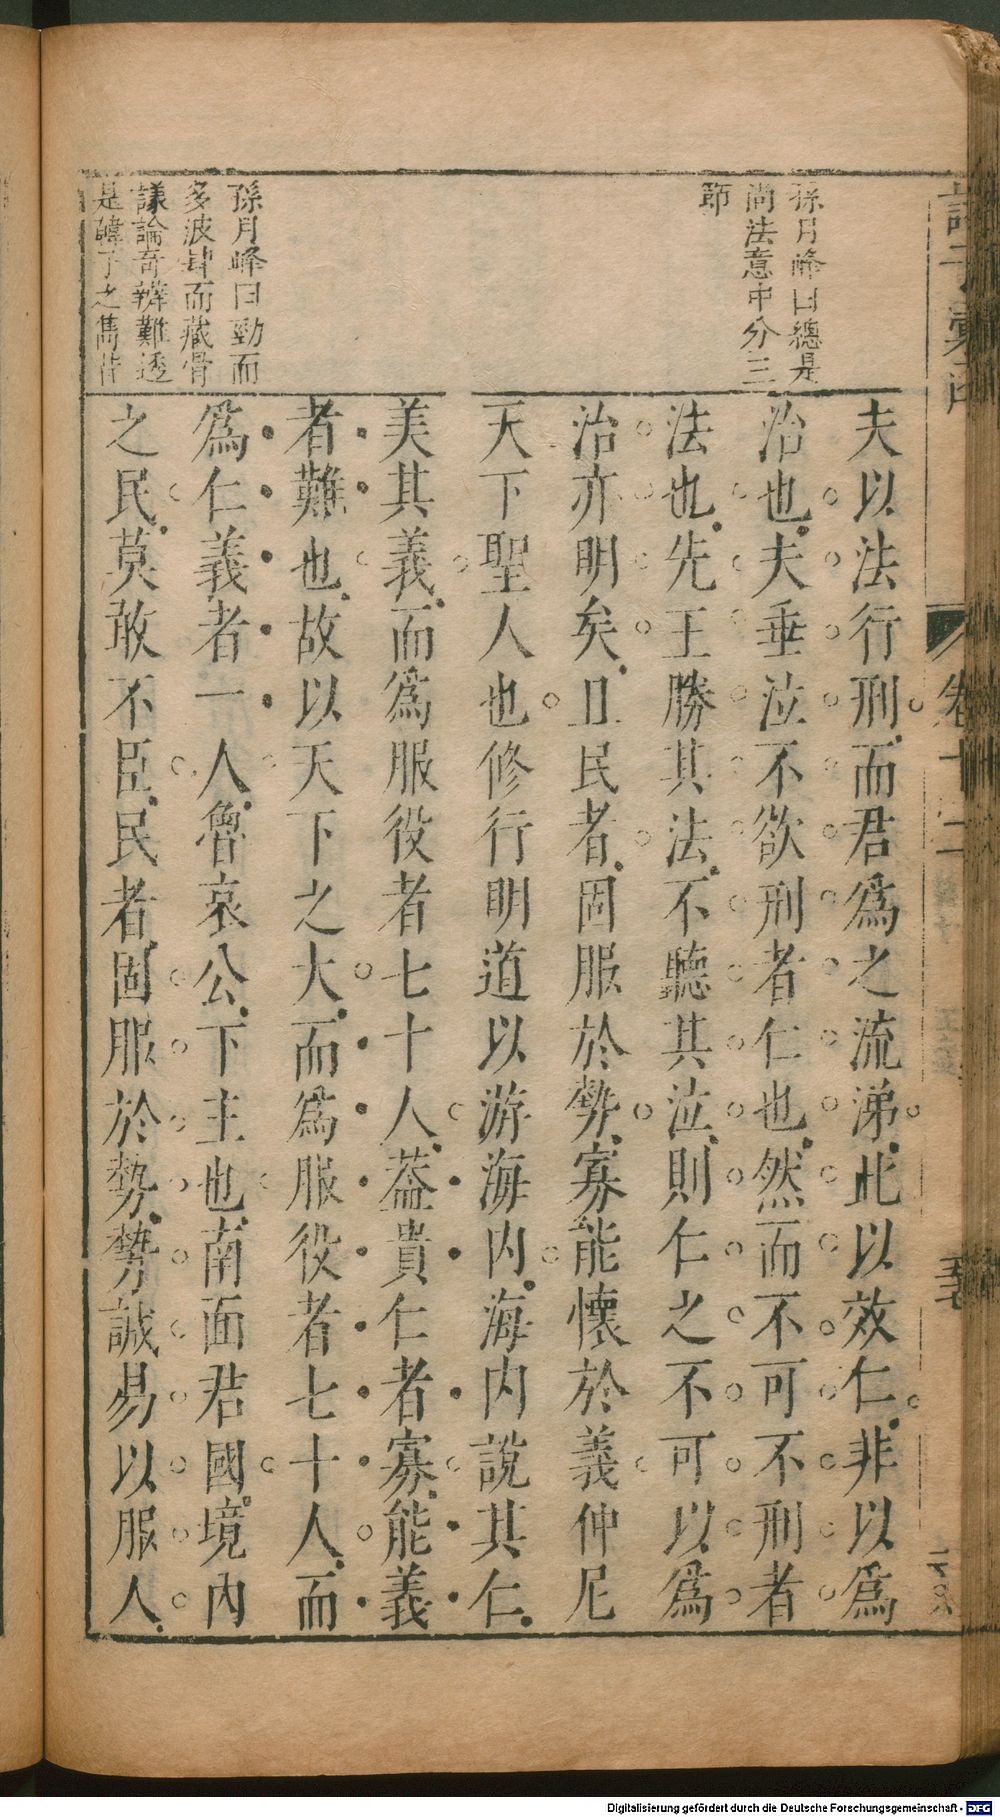 孫月峰曰總是
尚法意中分三
節
孫月峰曰勁而
多波肆而藏骨
議論奇辨難透
是韓子之雋
夫以法行刑而君爲之流涕此以效仁非以爲
治也夫垂泣不欲刑者仁也然而不可不刑者
法也先王勝其法不聽其泣則仁之不可以爲
治亦明矣且民者固服於勢寡能懷於義仲尼
天下聖人也修行明道以游海内海内說其仁
美其義而爲服役者七十人葢貴仁者寡能義
者難也故以天下之大而爲服役者七十人而
爲仁義者一人魯哀公下主也南面君國境內
之民莫敢不臣民者固服於勢勢誠易以服人
卷十二
Digitalisierung gefördert durch die Deutsche Forschungsgemeinschaft - DFG